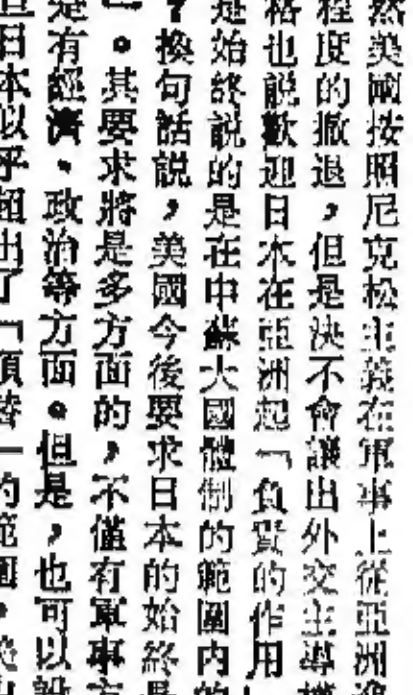 然美國按照尼克松主義在軍事上從亞洲
程度的撤退，但是決不會讓出外交主導權
格也說歡迎日本在亞洲起「負責的作用
是始終說的是在中蘇大國體制的範圍內的
？換句話說，美國今後要求日本的始終是
」。其要求將是多方面的，不僅有軍事方
是有經濟、政治等方面。但是，也可以說
日本似乎超出了「頂替」的範圍，